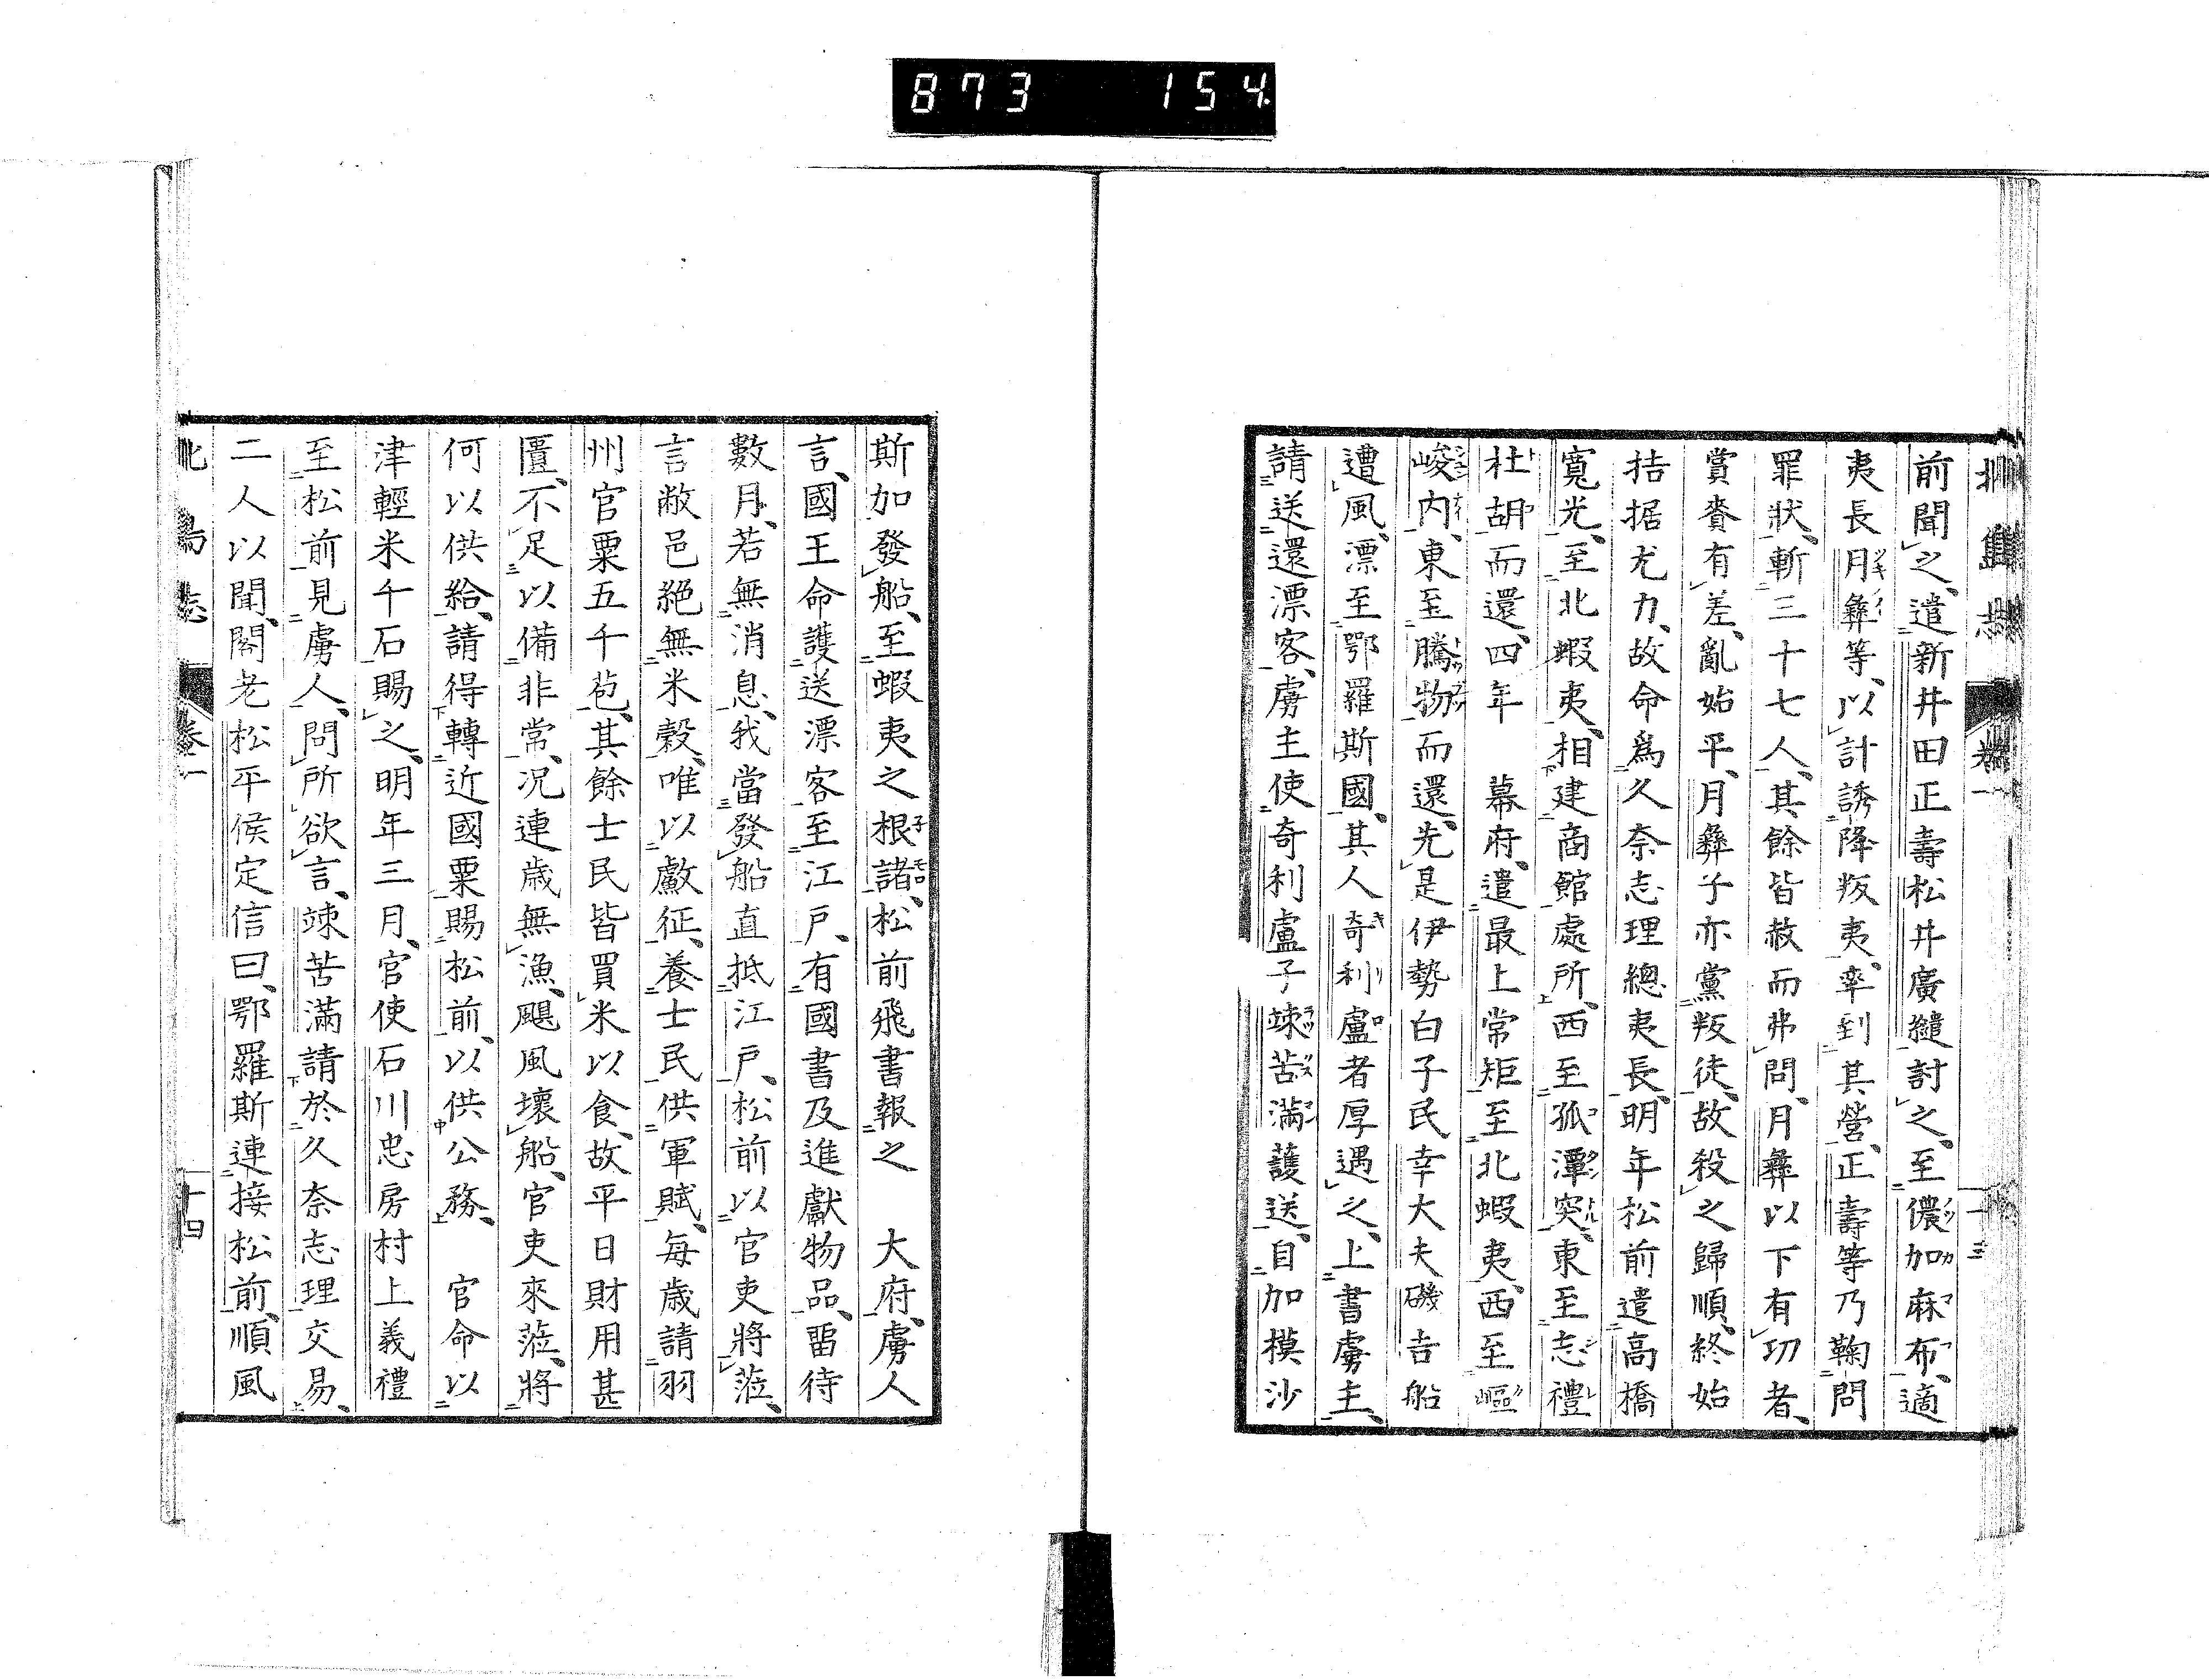 873 154
北島志 卷一 十三
前聞之、遣新井田正壽松井廣繾討之、至儂加麻布、適
夷長月彝等、以計誘降叛夷、率到其營、正壽等乃鞠問
罪狀、斬三十七人、其餘皆赦而弗問、月彝以下有功者、
賞賚有差、亂始平、月彝子亦黨叛徒、故殺之歸順、終始
拮据尤力、故命爲久奈志理總夷長、明年松前遣高橋
寬光、至北蝦夷、相建商館處所、西至孤潭突、東至志禮
杜胡而還、四年 幕府、遣最上常矩至北蝦夷、西至嶇
峻內、東至騰物而還、先是伊勢白子民幸大夫磯吉船
遭風、漂至鄂羅斯國、其人奇利盧者厚遇之、上書虜主、
請送還漂客、虜主使奇利盧子竦苦滿護送、自加模沙
斯加發船、至蝦夷之根諸、松前飛書報之 大府、虜人
言、國王命護送漂客至江戶、有國書及進獻物品、畱待
數月、若無消息、我當發船直抵江戶、松前以官吏將蒞、
言敝邑絕無米穀、唯以獻征、養士民供軍賦、每歲請羽
州官粟五千苞、其餘士民皆買米以食、故平日財用甚
匱、不足以備非常、況連歲無漁、颶風壞船、官吏來蒞、將
何以供給、請得轉近國粟賜松前、以供公務、 官命以
津輕米千石賜之、明年三月、官使石川忠房村上義禮
至松前見虜人、問所欲言、竦苦滿請於久奈志理交易、
二人以聞、閣老松平侯定信曰、鄂羅斯連接松前、順風
北島志 卷一 十四